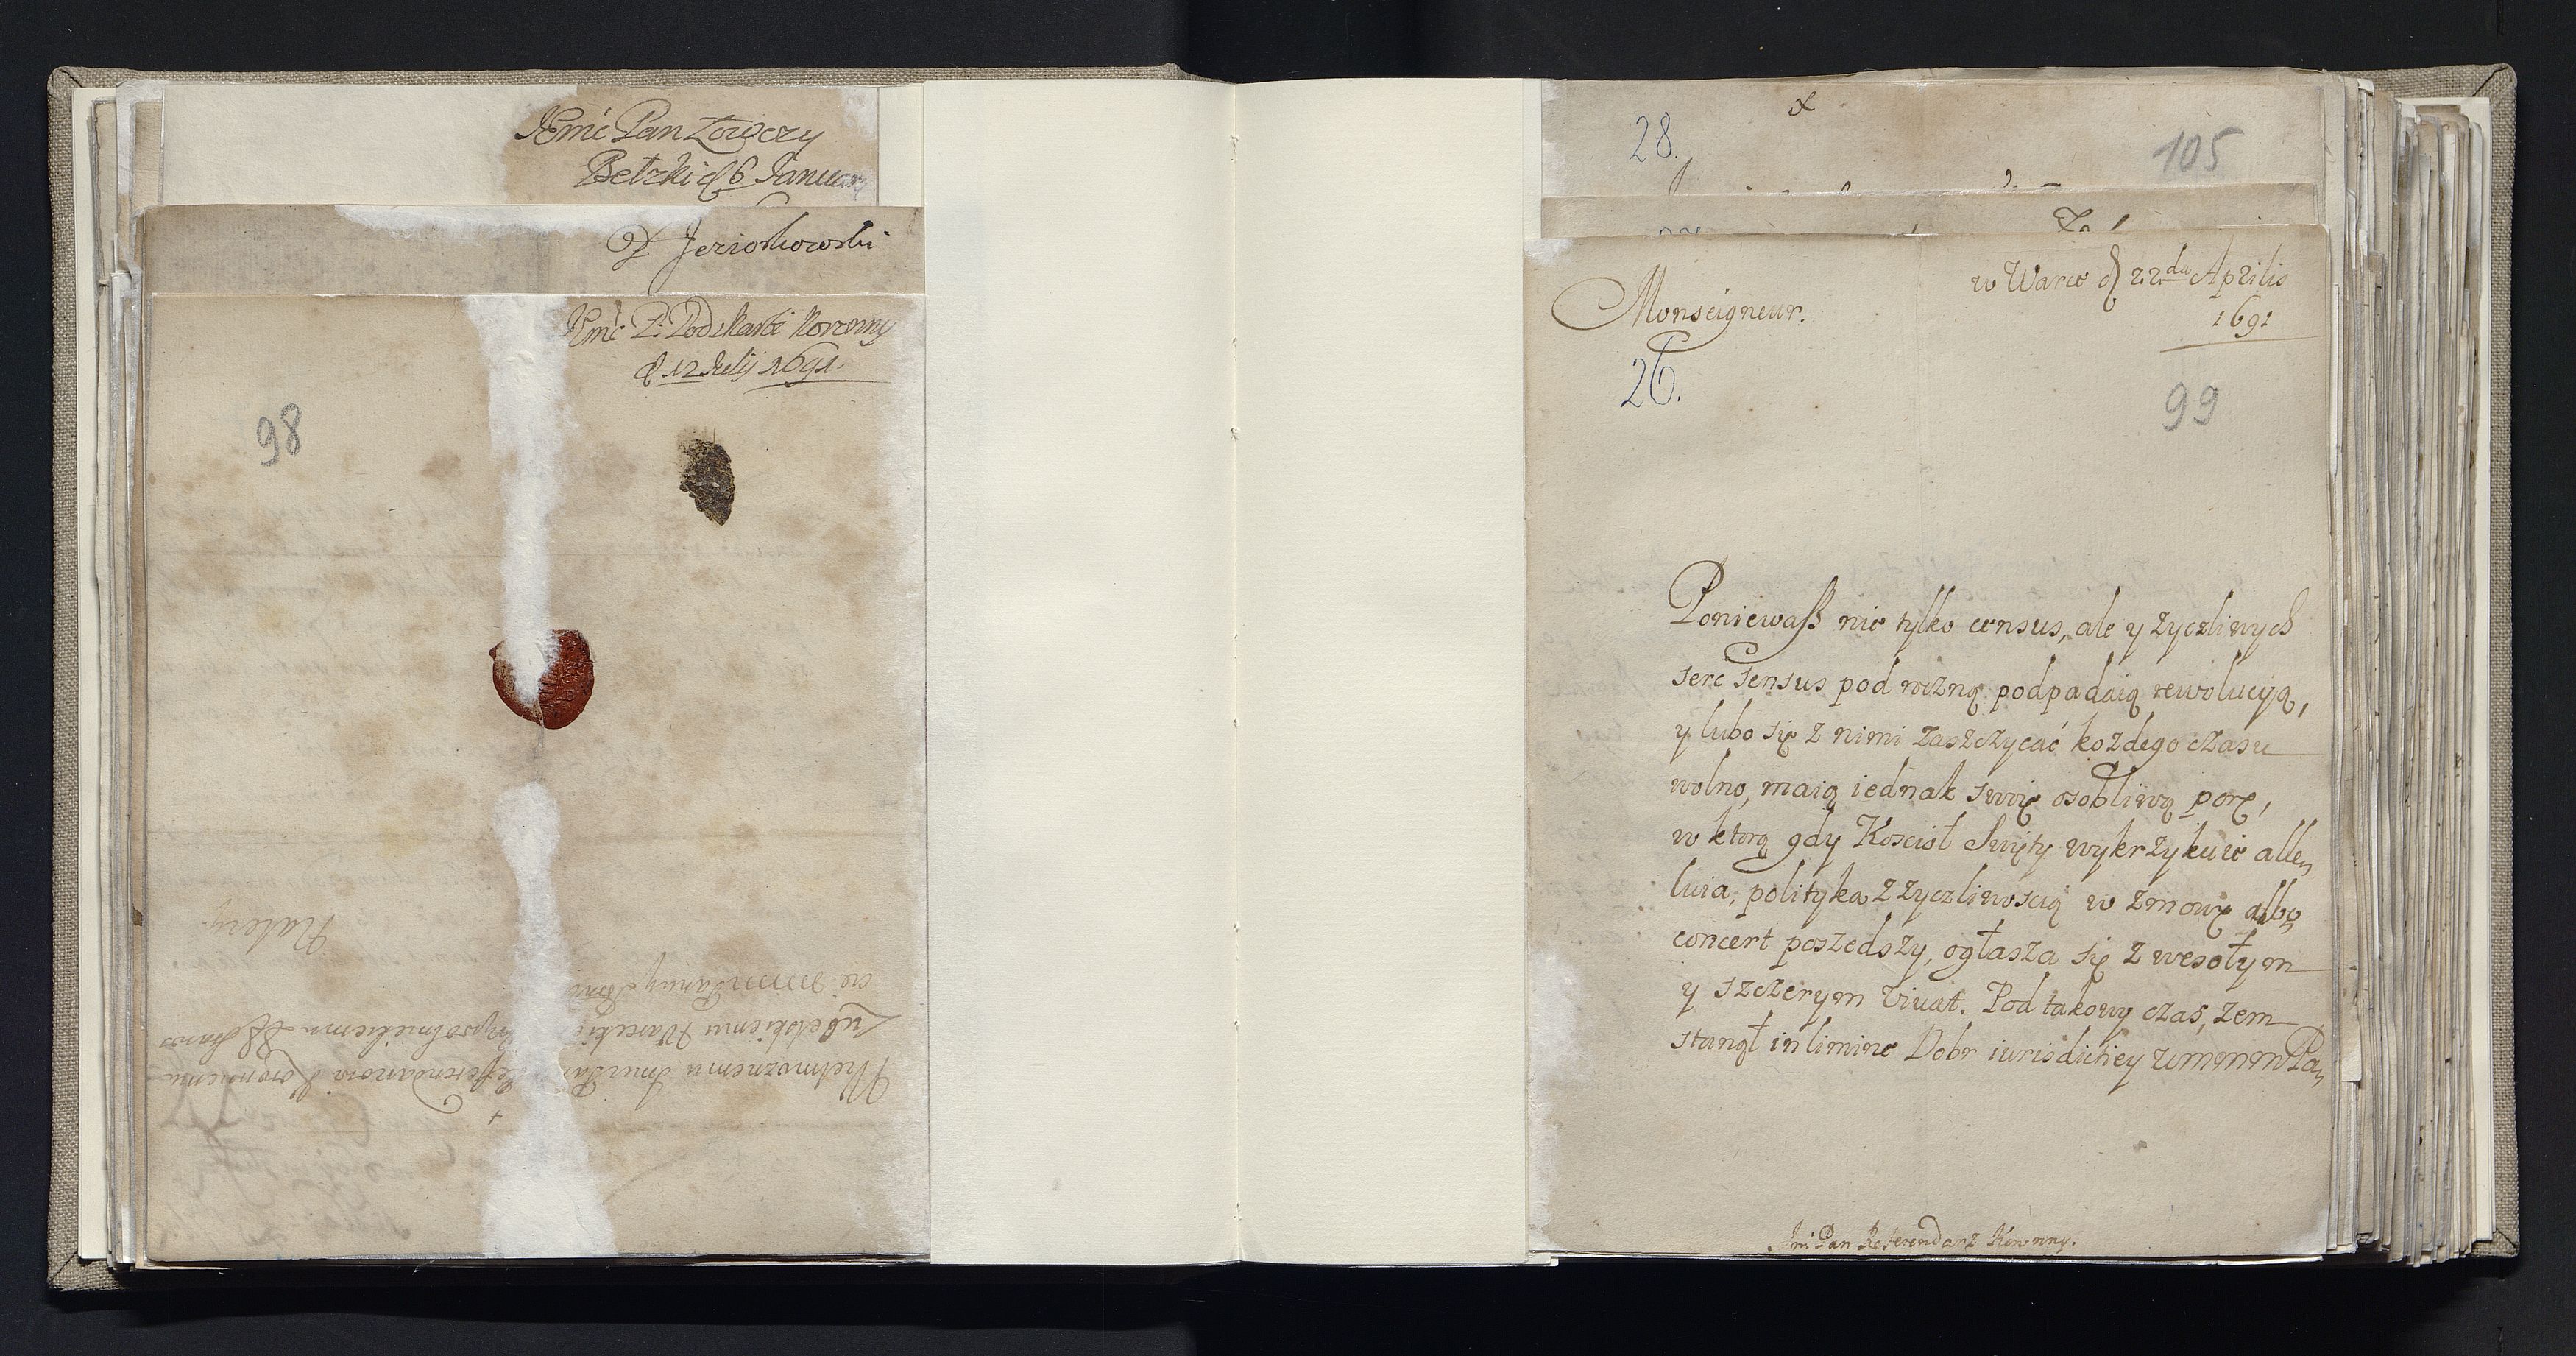 JEmć Pan Łowczy
Bełzki d 6 Januar
P Jeziorkowski
JEmć P. Podskarbi Koronny
d 12 Julij 1691.
98
Wielmoznemu Referendarzowi Koronnemu
Lubelskiemu Wareckie
28.
105
w Warce d 22da Aprilis
1691
Monseigneur.
26.
99
Poniewaß nie tylko census, ale y zyczliwych
serc sensus pod rożną podpadaią rewolucyą,
y lubo się z nimi zaszczycać kozdego czasu
wolno, maią iednak swoię osobliwą porę,
w ktorą gdy Koscioł Swięty wykrzykuie alle„
luia, polityka z zyczliwoscią w zmowę albo
concert poszedszy, ogłasza się z wesołym
y szczerym vivat. Pod takowy czas, zem
stanął in limine Dobr iurisdictiey wmmm Pa„
Jmć Pan Referendarz Koronny.